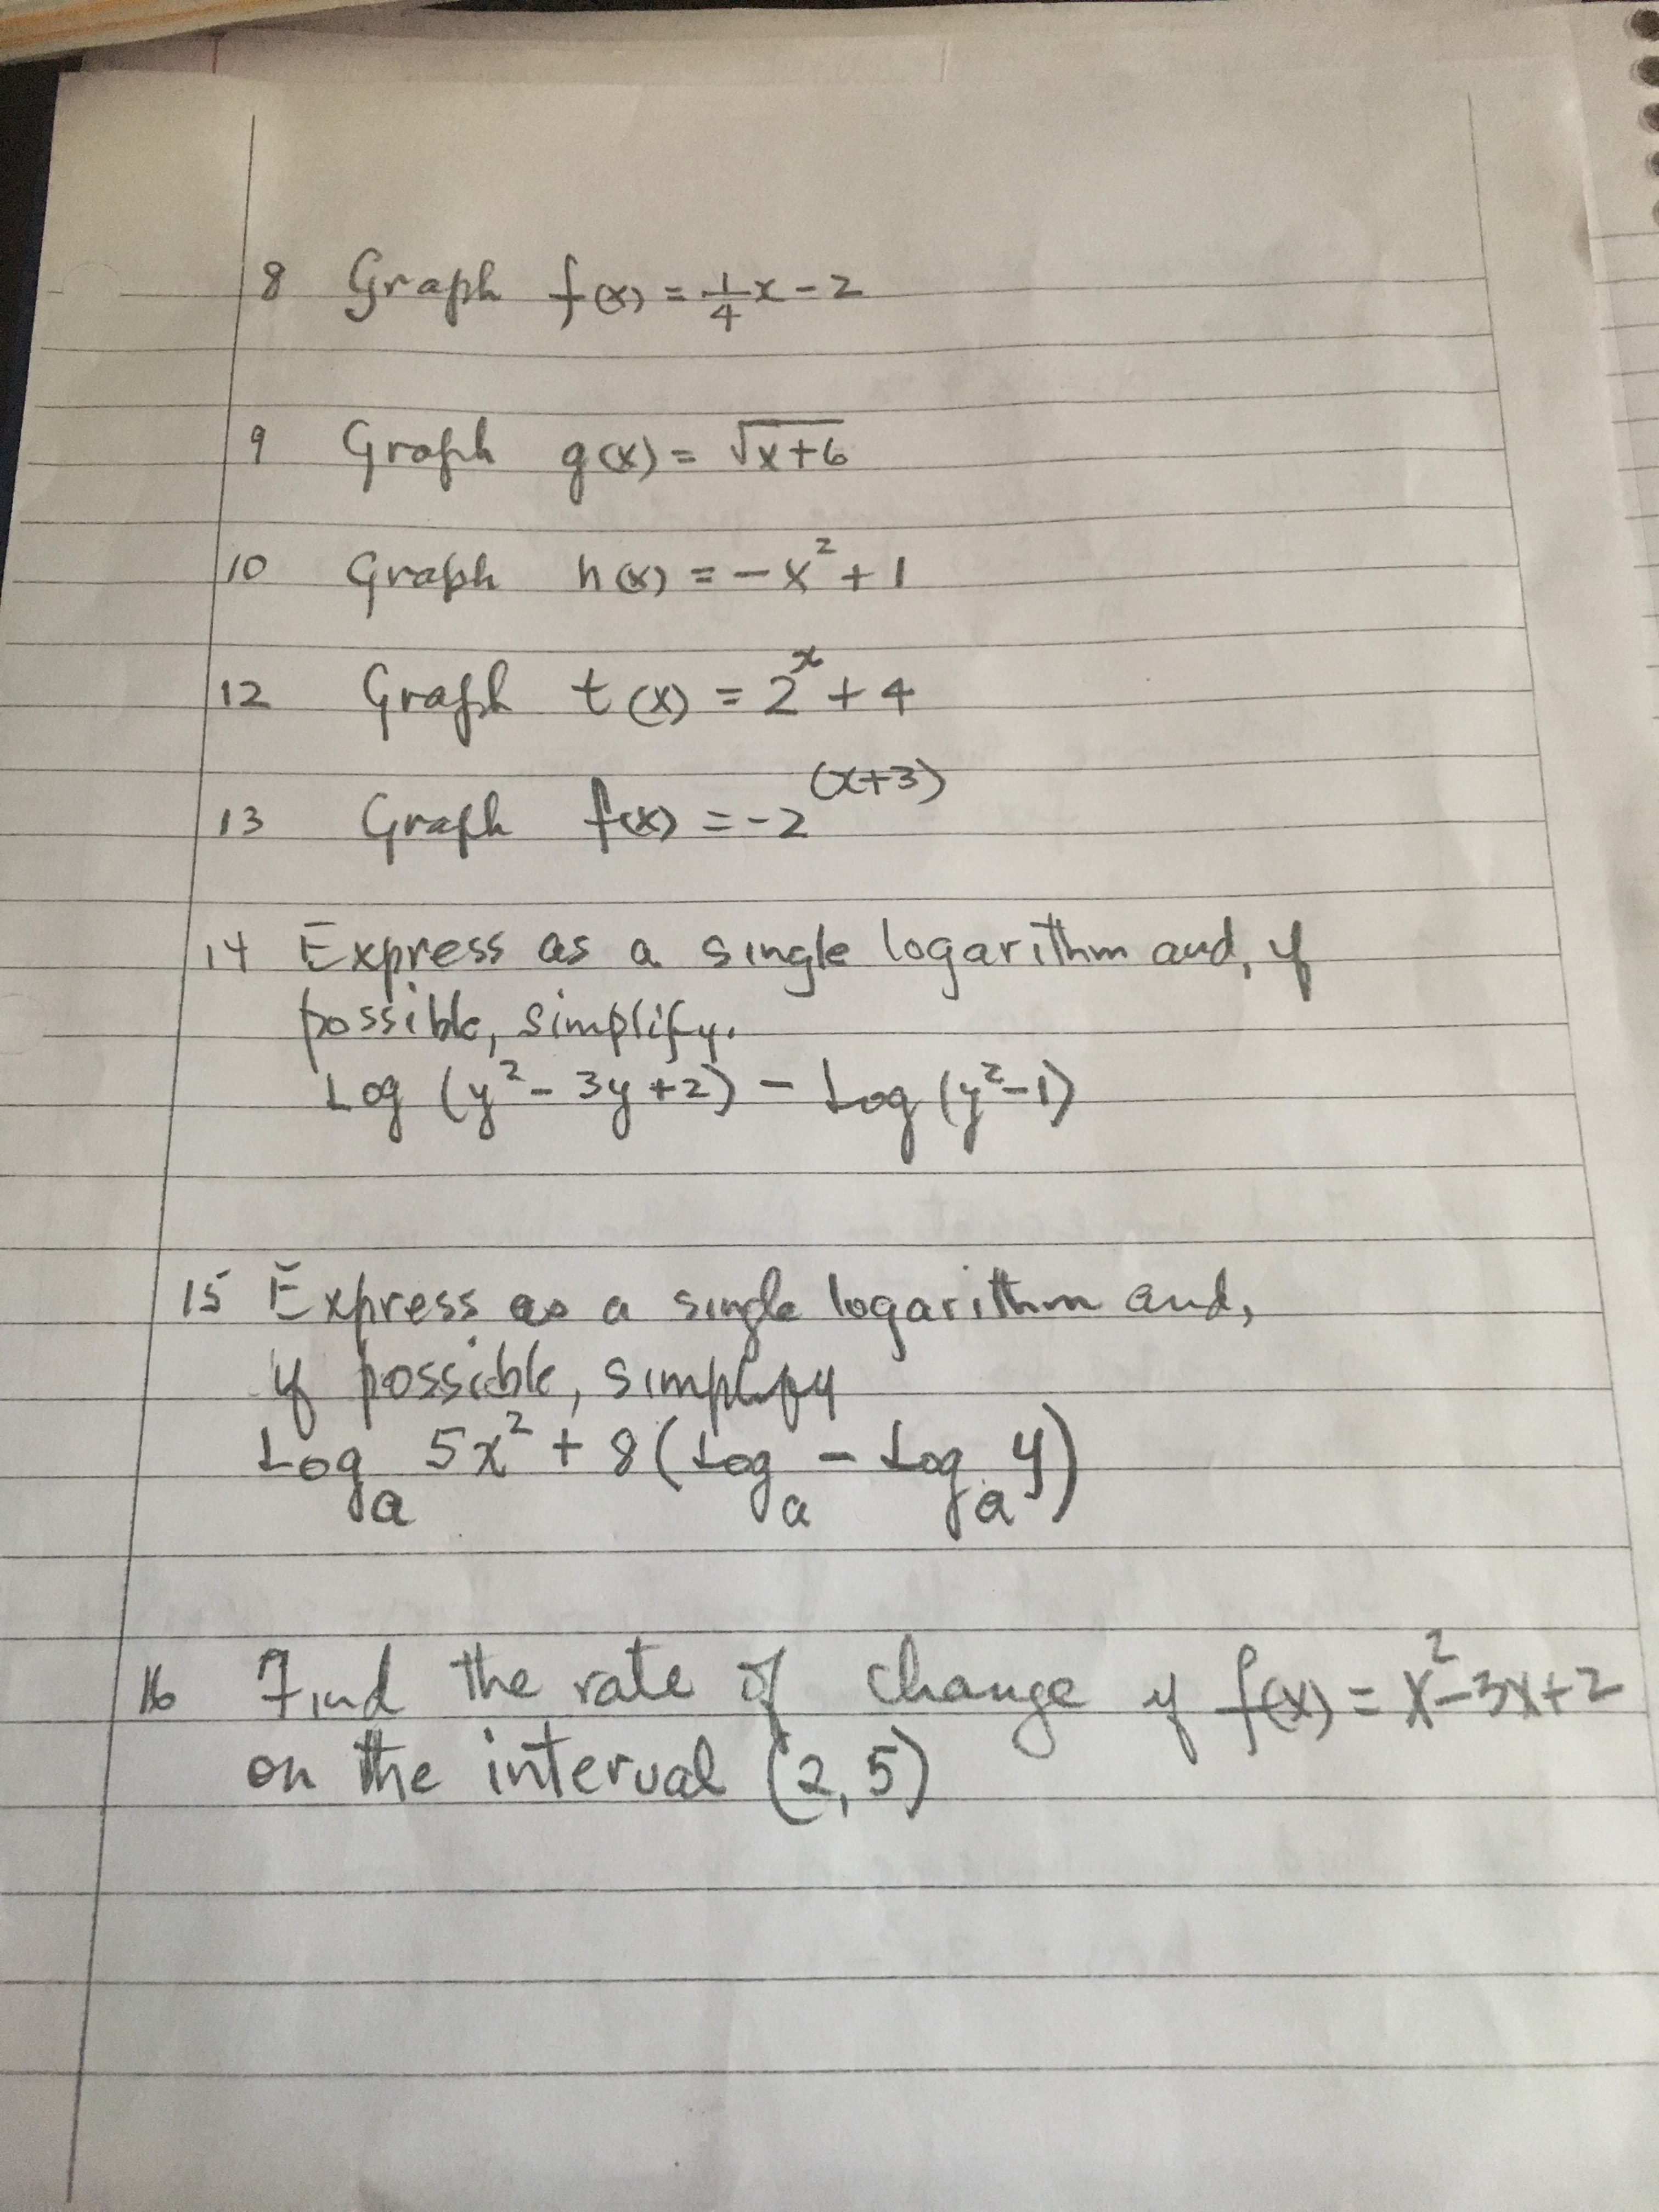 8 Graph f(x) = 1/4 x - 2
9 Graph g(x) = √x+6
10 Graph h(x) = -x² + 1
12 Graph t(x) = 2ˣ + 4
13 Graph f(x) = -2^(x+3)
14 Express as a single logarithm and, if
possible, simplify.
Log (y² - 3y + 2) - Log (y² - 1)
15 Express as a single logarithm and,
if possible, simplify
Logₐ 5x² + 8 (Logₐ - Logₐ y)
16 Find the rate of change if f(x) = x² - 3x + 2
on the interval (2, 5)